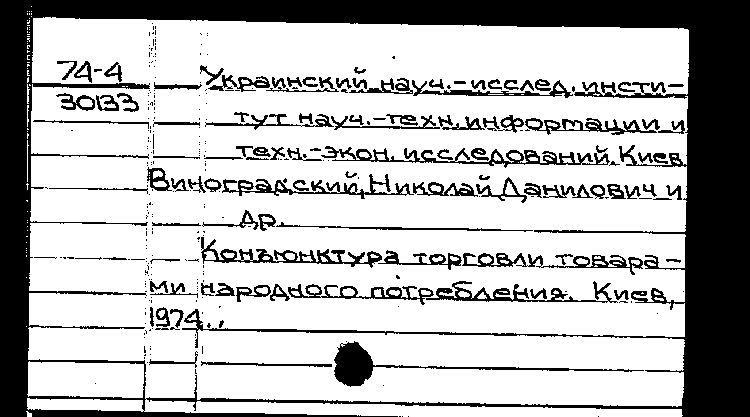 74-4
30133
Украинский науч.-исслед. инсти-
тут науч.-техн. информации и
техн.-экон. исследований. Киев
Виноградский, Николай Данилович и
др.
Конъюнктура торговли товара-
ми народного потребления. Киев,
1974.,